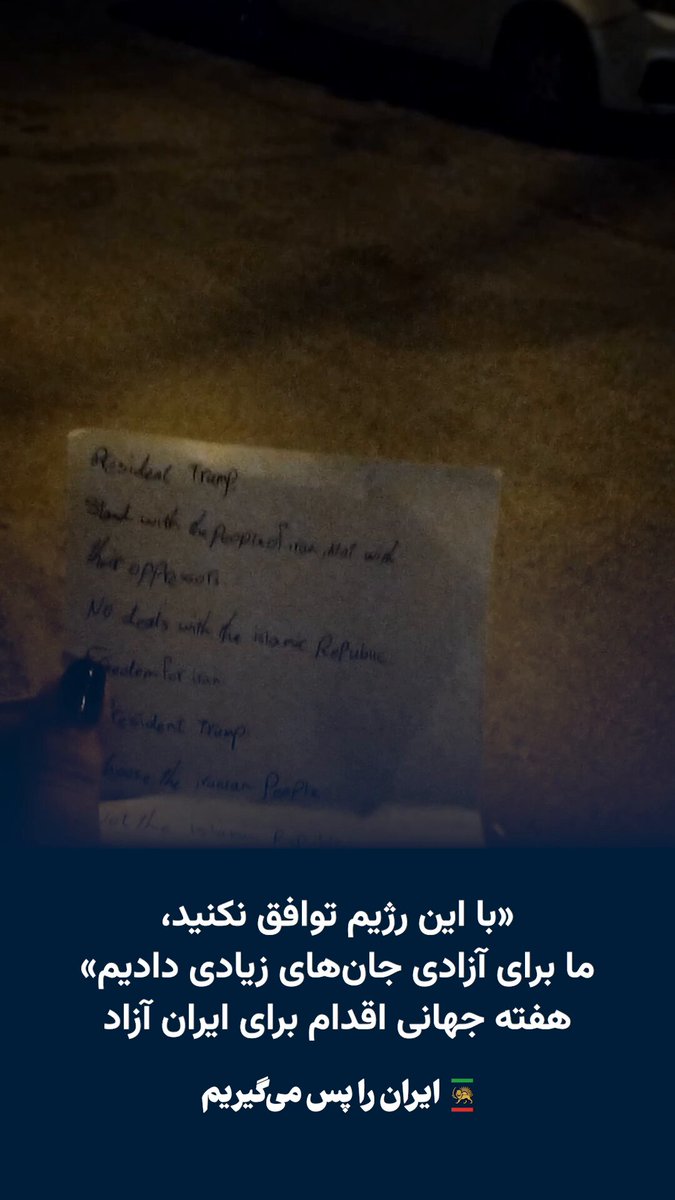 President Trump
Stand with the people of iran, Not with
their oppressors
No deals with the islamic Republic
Freedom for iran
President Trump
choose the iranian People
Not the islamic Republic
«با این رژیم توافق نکنید،
ما برای آزادی جان‌های زیادی دادیم»
هفته جهانی اقدام برای ایران آزاد
ایران را پس می‌گیریم